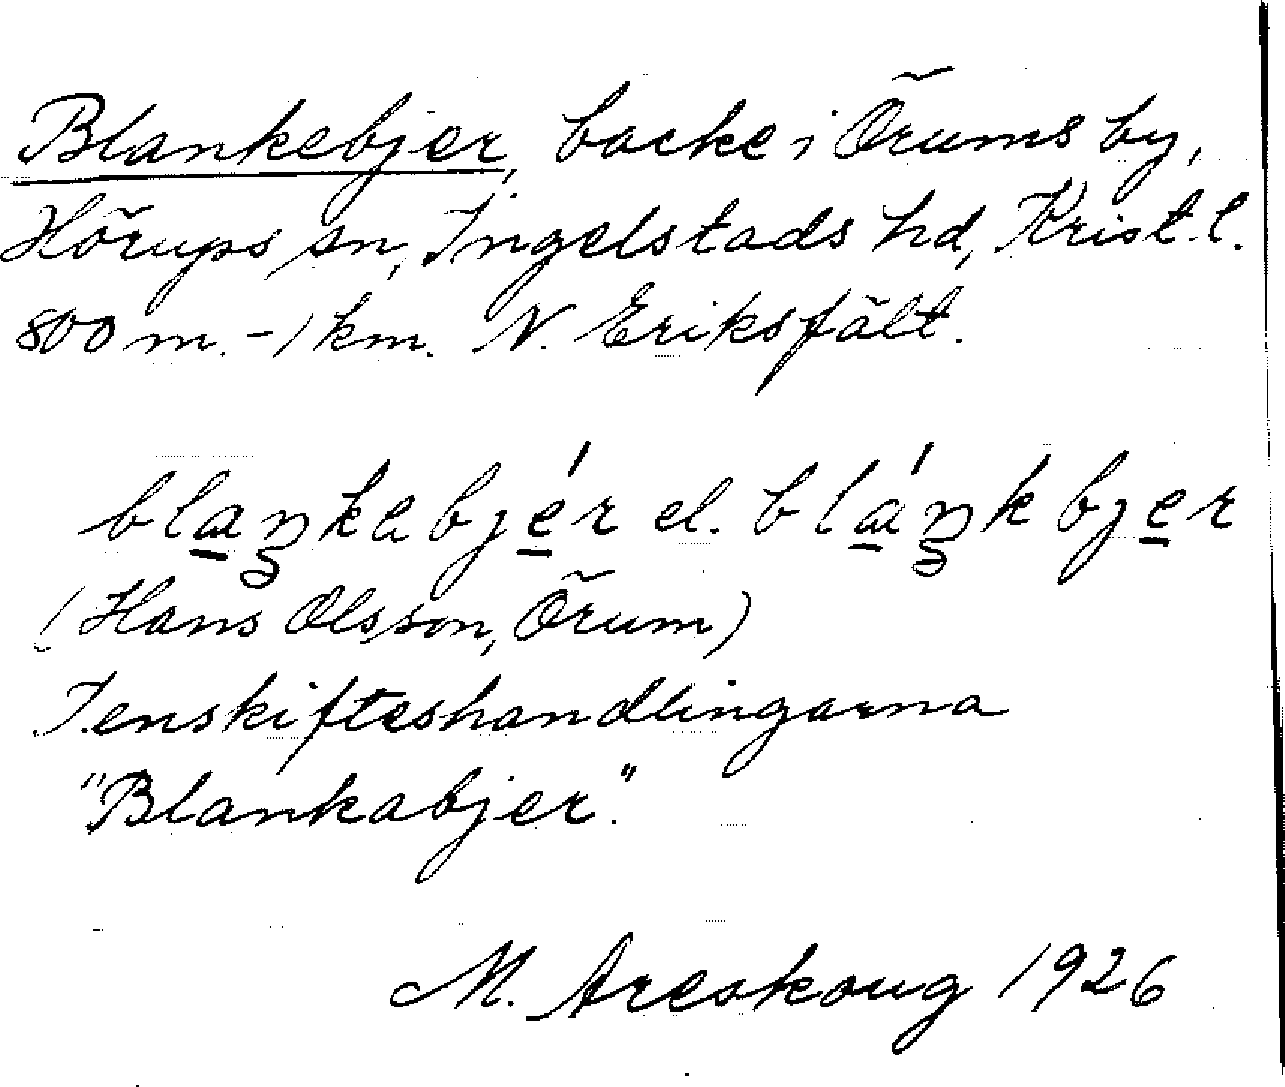 Blankebjer, backe i Örums by,
Hörups sn, Ingelstads hd, Krist. l.
800 m. - 1 km. N. Eriksfält.
blaŋkabjér el. bláŋkbjer
(Hans Olsson, Örum)
I enskifteshandlingarna
"Blankabjer".
M. Areskoug 1926